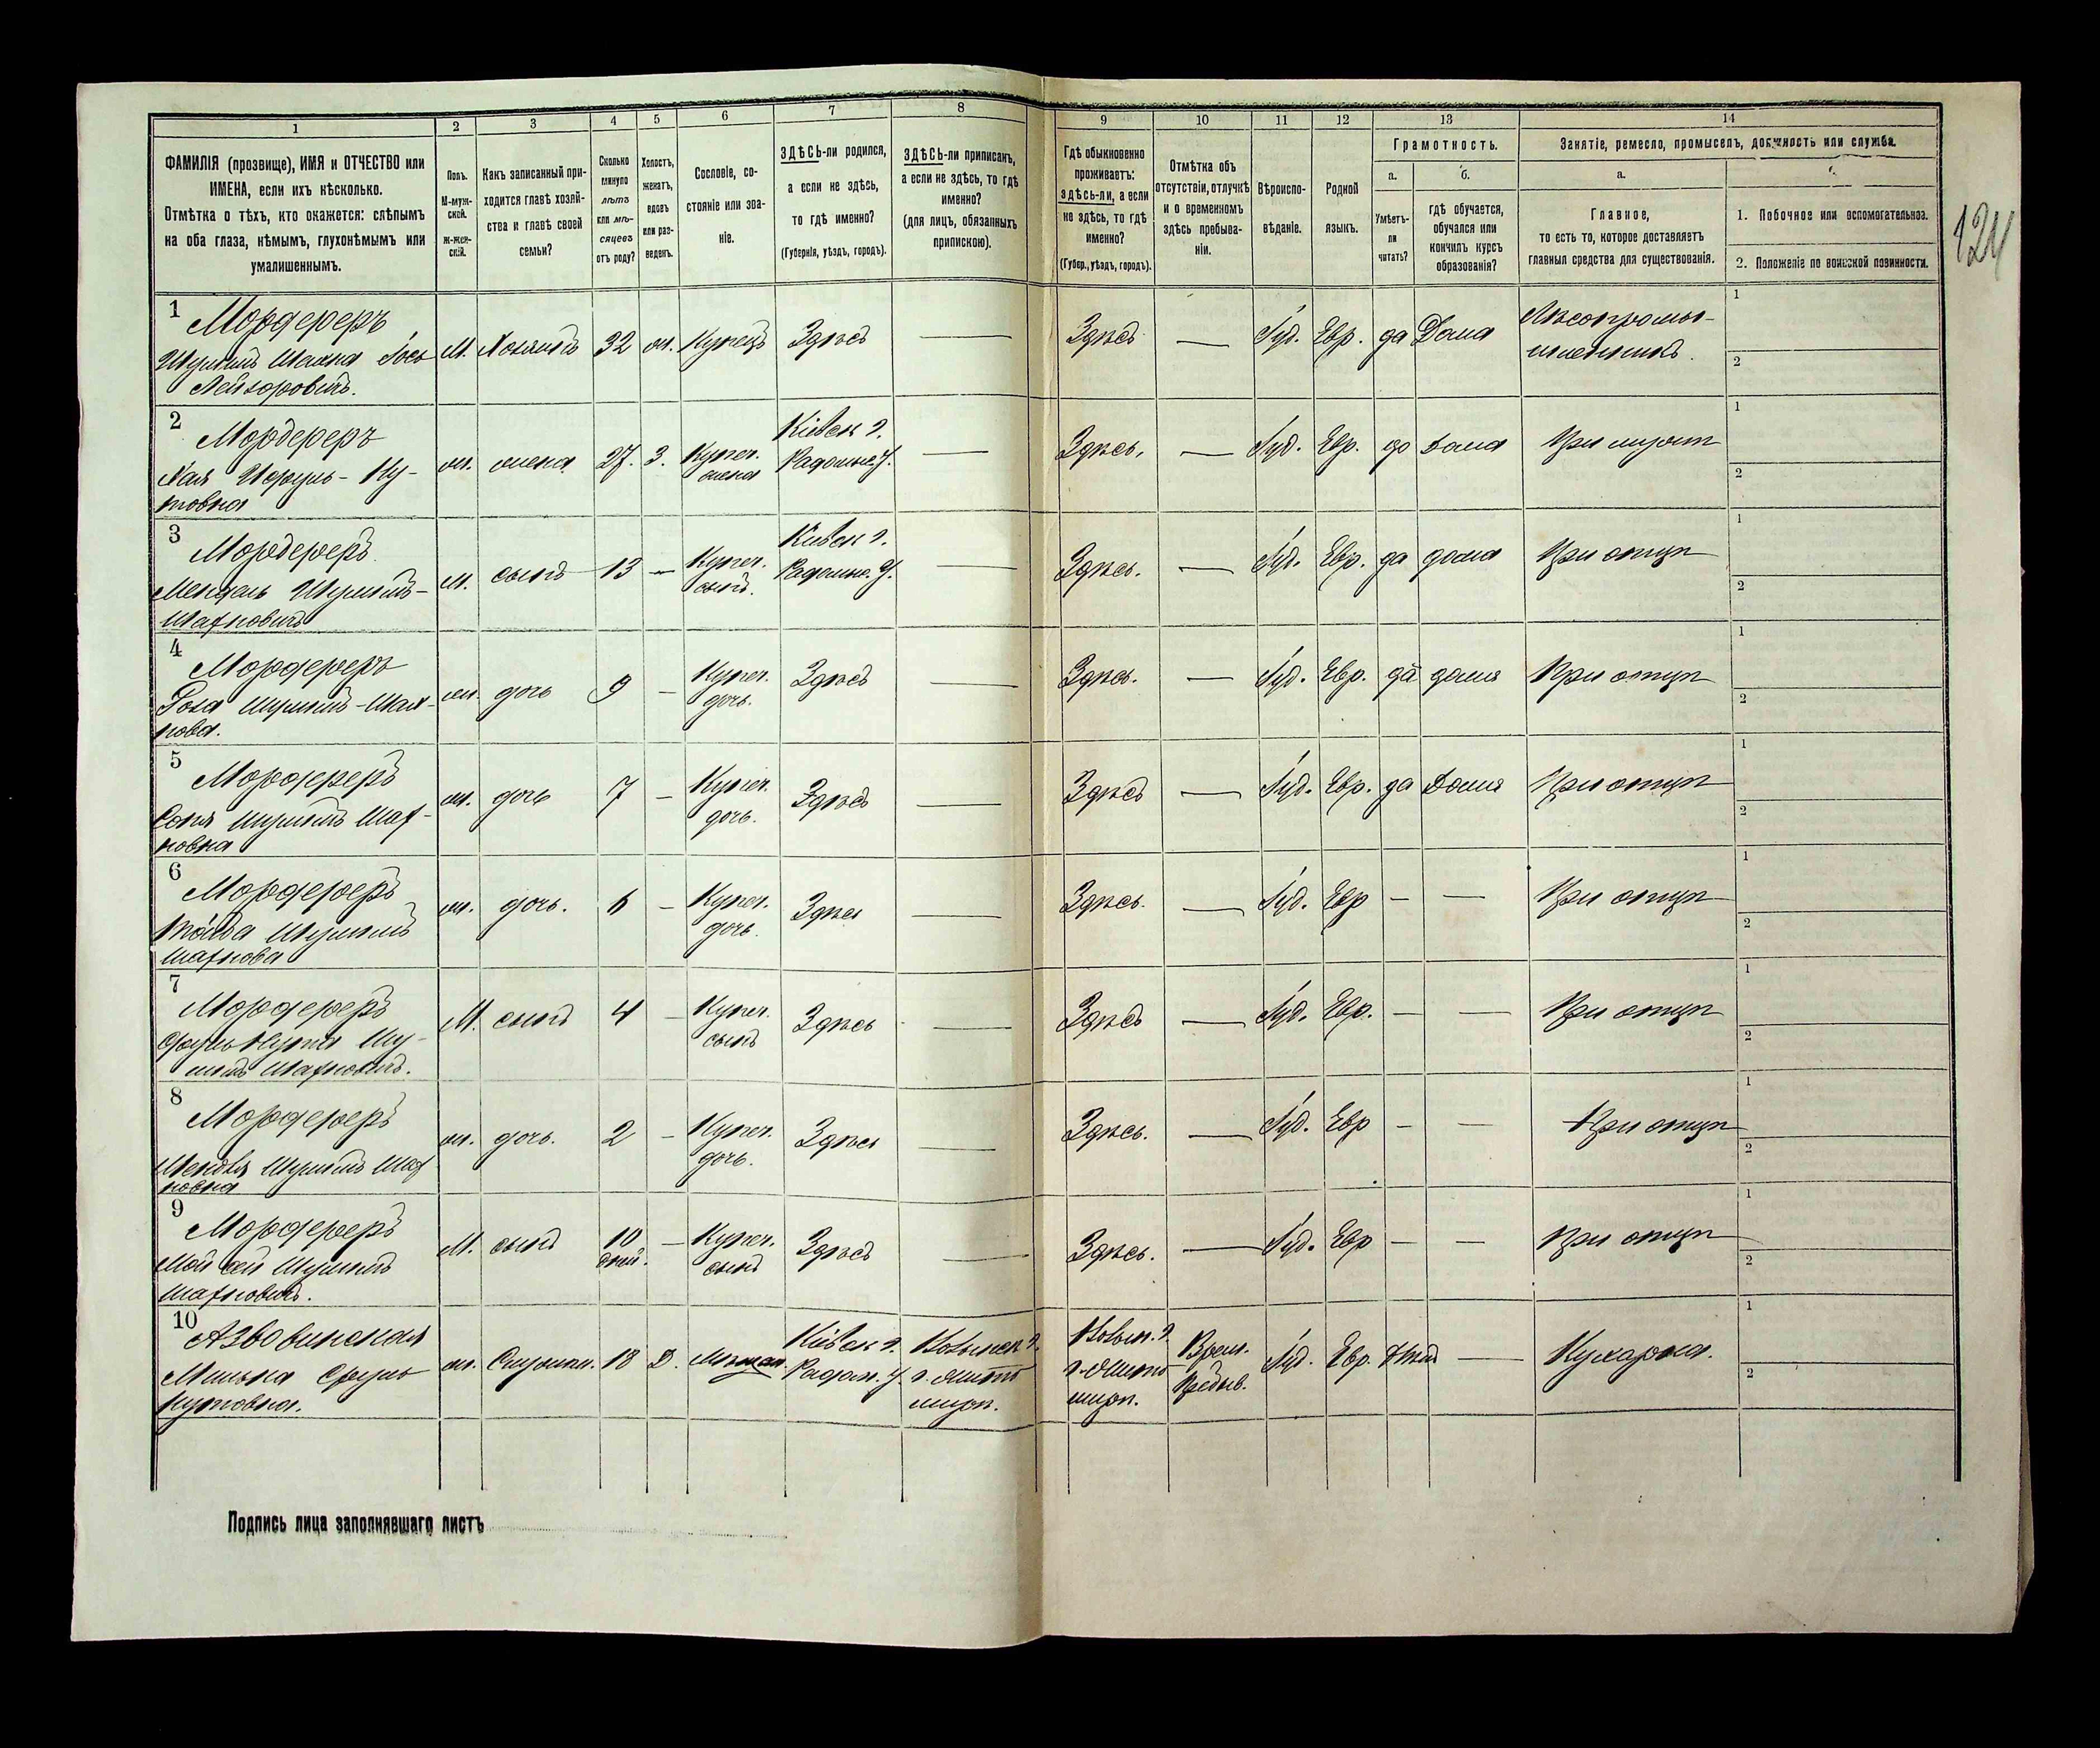 1
2
3
4
5
6
7
8
9
10
11
12
13
14
ФАМИЛІЯ (прозвище), ИМЯ и ОТЧЕСТВО или
ИМЕНА, если ихъ нѣсколько.
Отмѣтка о тѣхъ, кто окажется: слѣпымъ
на оба глаза, нѣмымъ, глухонѣмымъ или
умалишеннымъ.
Полъ.
М-муж-
ской.
Ж-жен-
скій.
Какъ записанный при-
ходится главѣ хозяй-
ства и главѣ своей
семьи?
Сколько
минуло
лѣтъ
или мѣ-
сяцевъ
отъ роду?
Холостъ,
женатъ,
вдовъ
или раз-
веденъ.
Сословіе, со-
стояніе или зва-
ніе.
ЗДѢСЬ-ли родился,
а если не здѣсь,
то гдѣ именно?
(Губернія, уѣздъ, городъ).
ЗДѢСЬ-ли приписанъ,
а если не здѣсь, то гдѣ
именно?
(для лицъ, обязанныхъ
припискою).
Гдѣ обыкновенно
проживаетъ:
здѣсь-ли, а если
не здѣсь, то гдѣ
именно?
(Губер., уѣздъ, городъ).
Отмѣтка объ
отсутствіи, отлучкѣ
и о временномъ
здѣсь пребыва-
ніи.
Вѣроиспо-
вѣданіе.
Родной
языкъ.
Грамотность.
а.
Умѣетъ-
ли
читать?
б.
гдѣ обучается,
обучался или
кончилъ курсъ
образованія?
Занятіе, ремесло, промыселъ, должность или служба.
а.
Главное,
то есть то, которое доставляетъ
главныя средства для существованія.
1. Побочное или вспомогательное.
2. Положеніе по воинской повинности.
124
1
Мордереръ
Лейзоровичъ.
М. Хозяинъ 32 ж. Купецъ Здѣсь — Здѣсь — Іуд. Евр. да Дома
Лѣсопромы-
шленникъ.
1
2
2
Мордереръ
Хая
товна
ж. жена 27. З. Купеч.
жена
Кіевск г.
Радомыс. у.
— Здѣсь. — Іуд. Евр. да Дома При мужѣ
1
2
3
Мордереръ
Мендель
Шахновичъ
М. сынъ 13 — Купеч.
сынъ.
Кіевск г.
Радомыс. у.
— Здѣсь. — Іуд. Евр. да дома При отцѣ
1
2
4
Мордереръ
Роза
нова.
ж. дочь 9 — Купеч.
дочь.
Здѣсь — Здѣсь. — Іуд. Евр. да дома При отцѣ
1
2
5
Мордереръ
Соня
новна
ж. дочь 7 — Купеч.
дочь.
Здѣсь — Здѣсь — Іуд. Евр. да Дома При отцѣ
1
2
6
Мордереръ
Шахнова
ж. дочь. 6 — Купеч.
дочь.
Здѣсь — Здѣсь. — Іуд. Евр — — При отцѣ
1
2
7
Мордереръ
Шахновичъ.
М. сынъ 4 — Купеч.
сынъ
Здѣсь — Здѣсь — Іуд. Евр. — — При отцѣ
1
2
8
Мордереръ
новна
ж. дочь. 2 — Купеч.
дочь.
Здѣсь — Здѣсь. — Іуд. Евр — — При отцѣ
1
2
9
Мордереръ
Мойсей
Шахновичъ.
М. сынъ 10
дней.
— Купеч.
сынъ
Здѣсь — Здѣсь. — Іуд. Евр — — При отцѣ
1
2
10
ж. 18 Д.
Кіевск г.
Радом. у.
Волынск г.
г. Жито
мир.
Волын. г.
г. Жито
мир.
Врем.
Іуд. Евр. — Кухарка.
1
2
Подпись лица заполнявшаго листъ